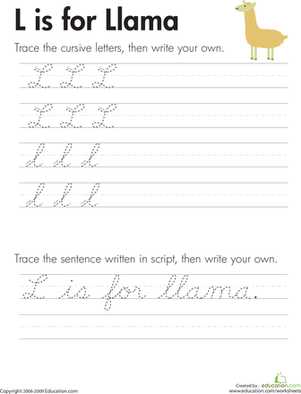 L is for Llama
Trace the cursive letters, then write your own.
L L L
L L L
l l l
l l l
Trace the sentence written in script, then write your own.
L is for llama.
Created by: education.com
Copyright 2008-2009 Education.com
www.education.com/worksheets